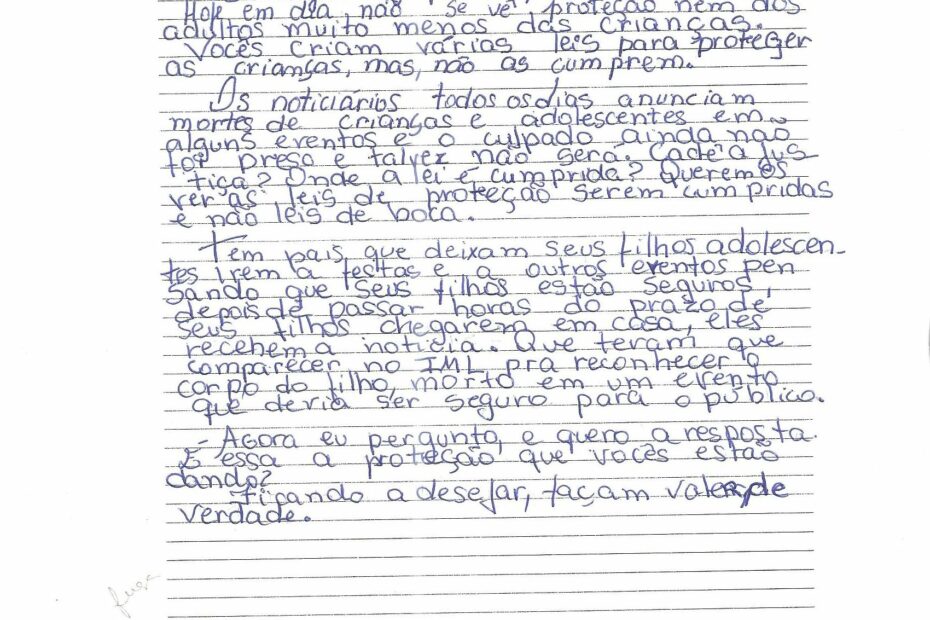 Hoje em dia não se vê proteção nem dos
adultos muito menos das crianças.
Vocês criam várias leis para proteger
as crianças, mas, não as cumprem.
Os noticiários todos os dias anunciam
mortes de crianças e adolescentes em
alguns eventos e o culpado ainda não
foi preso e talvez não será. Cadê a jus
tiça? Onde a lei é cumprida? Queremos
ver as leis de proteção serem cumpridas
e não leis de boca.
Tem pais, que deixam seus filhos adolescen-
tes irem a festas e a outros eventos pen
sando que seus filhos estão seguros,
depois de passar horas do prazo de
seus filhos chegarem em casa, eles
recebem a noticia. Que teram que
comparecer no IML pra reconhecer o
corpo do filho, morto em um evento
que deveria ser seguro para o público.
- Agora eu pergunto, e quero a resposta.
É essa a proteção que vocês estão
dando?
Ficando a desejar, façam valer, de
verdade.